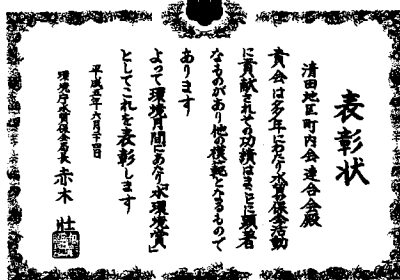 表彰状
清田地区町内会連合会殿
貴会は多年にわたり水質保全活動
に貢献されその功績はまことに顕著
なものがあり他の模範となるもので
あります
よって環境月間にあたり「水環境賞」
としてこれを表彰します
平成五年六月十四日
環境庁水質保全局長 赤木 壮